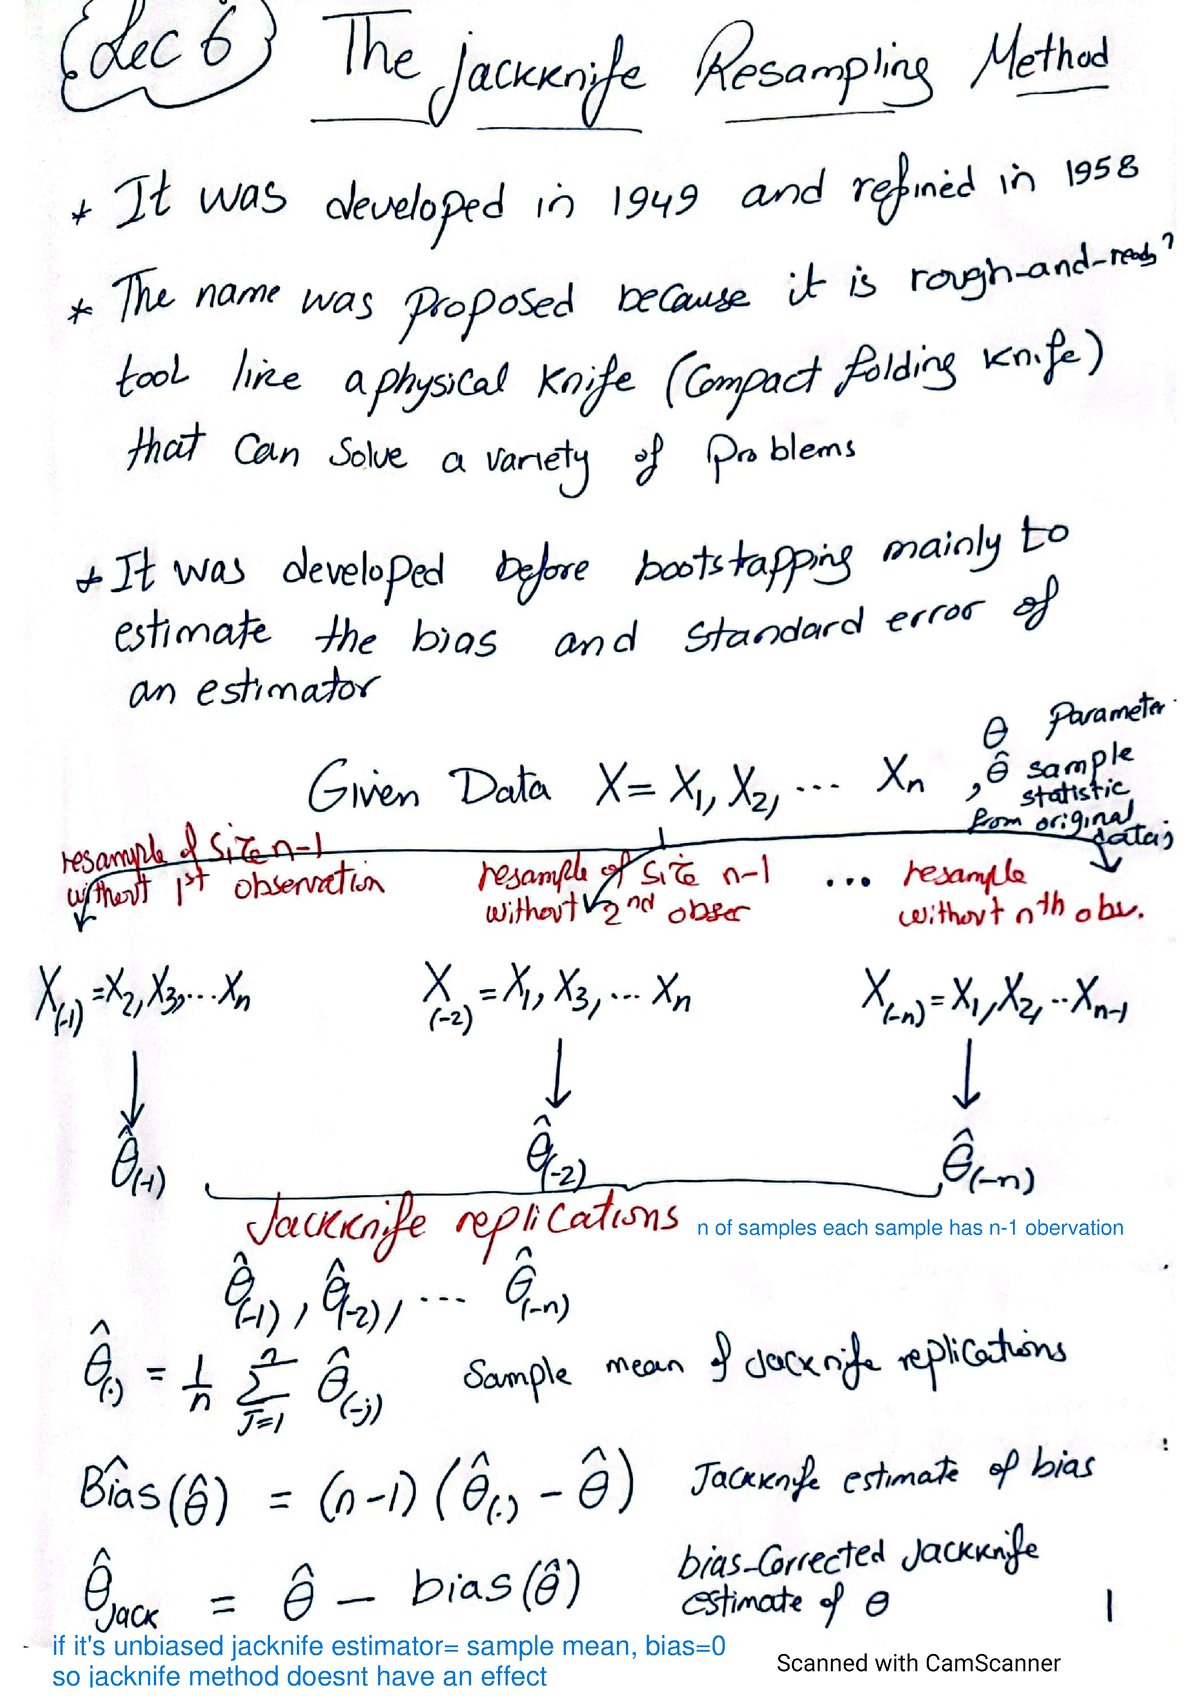 Lec 6 The Jackknife Resampling Method
* It was developed in 1949 and refined in 1958
* The name was proposed because it is rough-and-ready
tool like a physical knife (Compact folding knife)
that can solve a variety of problems
* It was developed before bootstapping mainly to
estimate the bias and standard error of
an estimator
θ Parameter
Given Data X = X₁, X₂, ... Xn , θ̂ sample
statistic
from original
data;
resample of size n-1
without 1st observation
resample of size n-1
without 2nd obser
... resample
without nth obs.
X(-1) = X₂, X₃, ... Xn
X(-2) = X₁, X₃, ... Xn
X(-n) = X₁, X₂, .. Xn-1
θ̂(-1)
θ̂(-2)
θ̂(-n)
Jackknife replications n of samples each sample has n-1 obervation
θ̂(-1), θ̂(-2), ... θ̂(-n)
θ̂(.) = 1/n Σ J=1 n θ̂(-j) Sample mean of Jacknife replications
Bîas(θ̂) = (n-1) (θ̂(.) - θ̂) Jackknife estimate of bias
θ̂Jack = θ̂ - bias(θ̂) bias-Corrected Jackknife
estimate of θ
1
if it's unbiased jacknife estimator= sample mean, bias=0
so jacknife method doesnt have an effect
Scanned with CamScanner